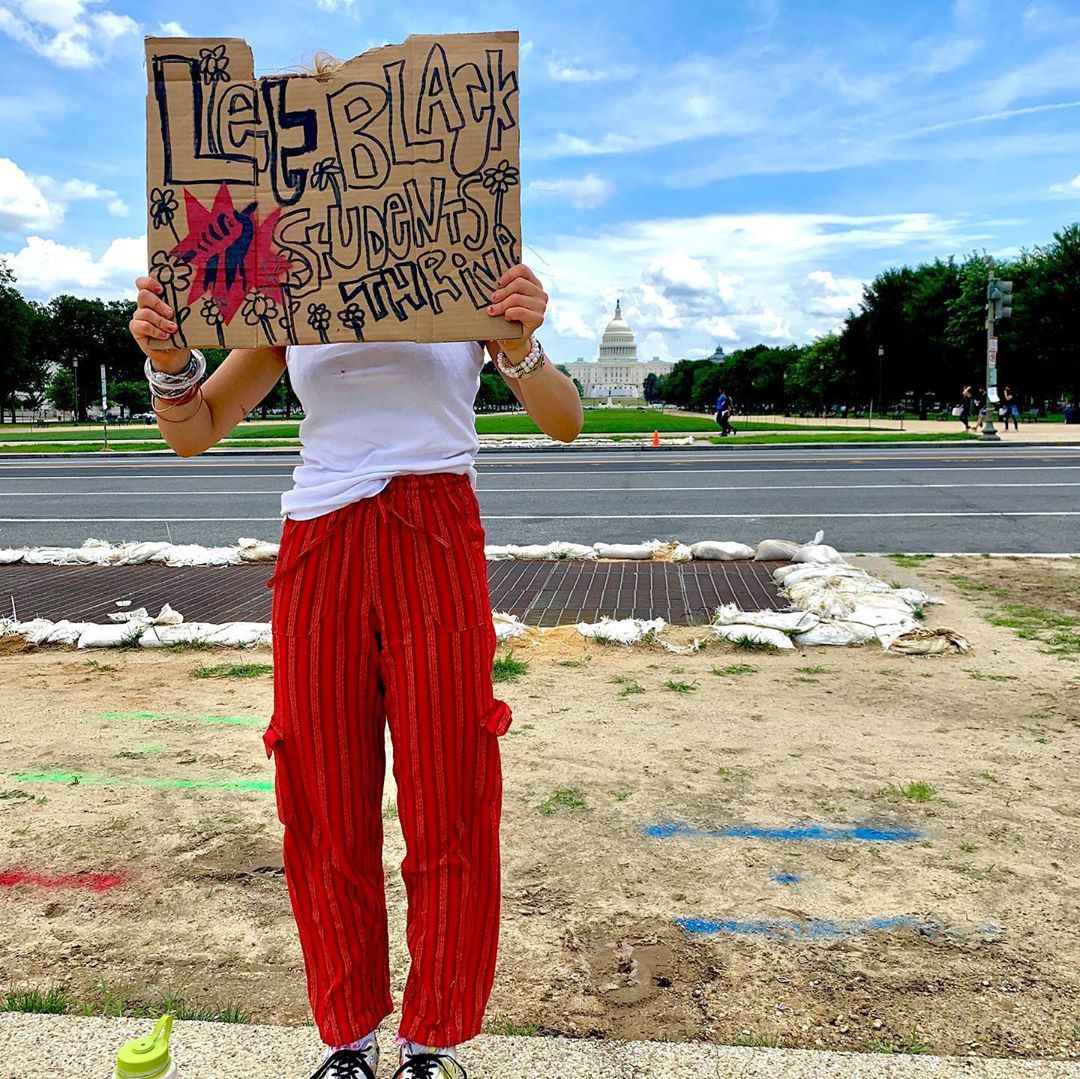 Let BLAck
StUDENtS
tHRIVE